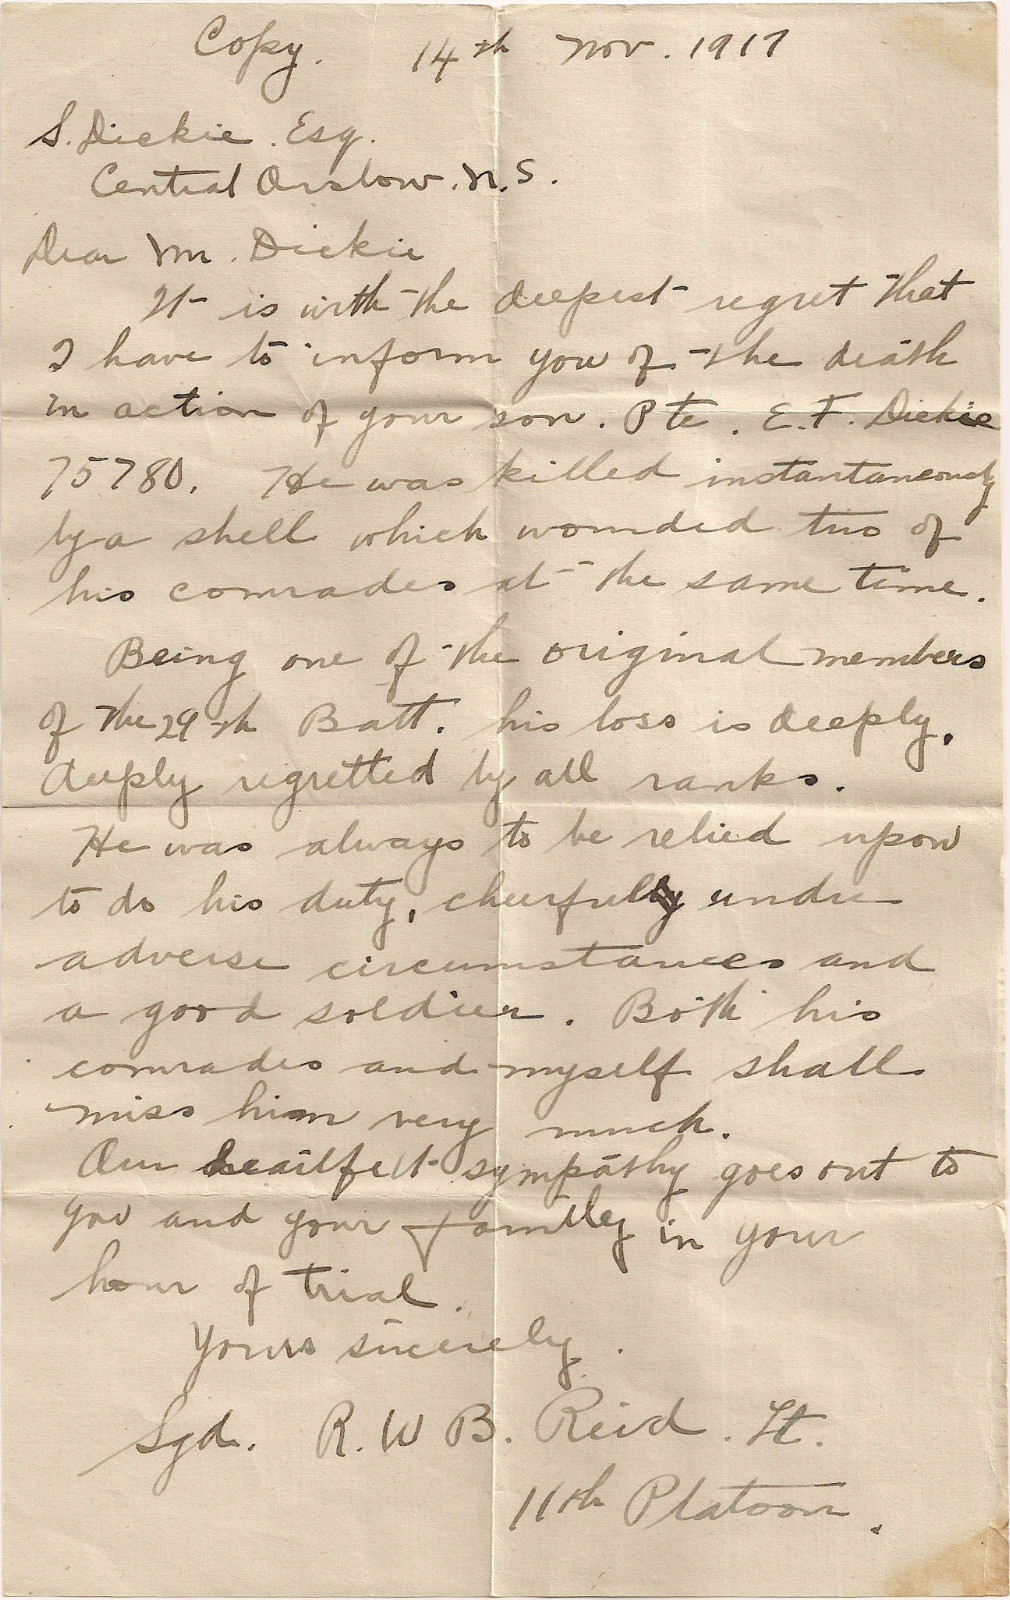 Copy. 14th Nov. 1917
S. Dickie. Esq.
Central Onslow. N.S.
Dear Mr. Dickie
It is with the deepest regret that
I have to inform you of the death
in action of your son. Pte. E.F. Dickie
75780. He was killed instantaneously
by a shell which wounded two of
his comrades at the same time.
Being one of the original members
of the 29th Batt. his loss is deeply,
deeply regretted by all ranks.
He was always to be relied upon
to do his duty, cheerfully under
adverse circumstances and
a good soldier. Both his
comrades and myself shall
miss him very much.
Our heartfelt sympathy goes out to
you and your family in your
hour of trial.
Yours sincerely.
Sgd. R. W B. Reid. Lt.
11th Platoon.